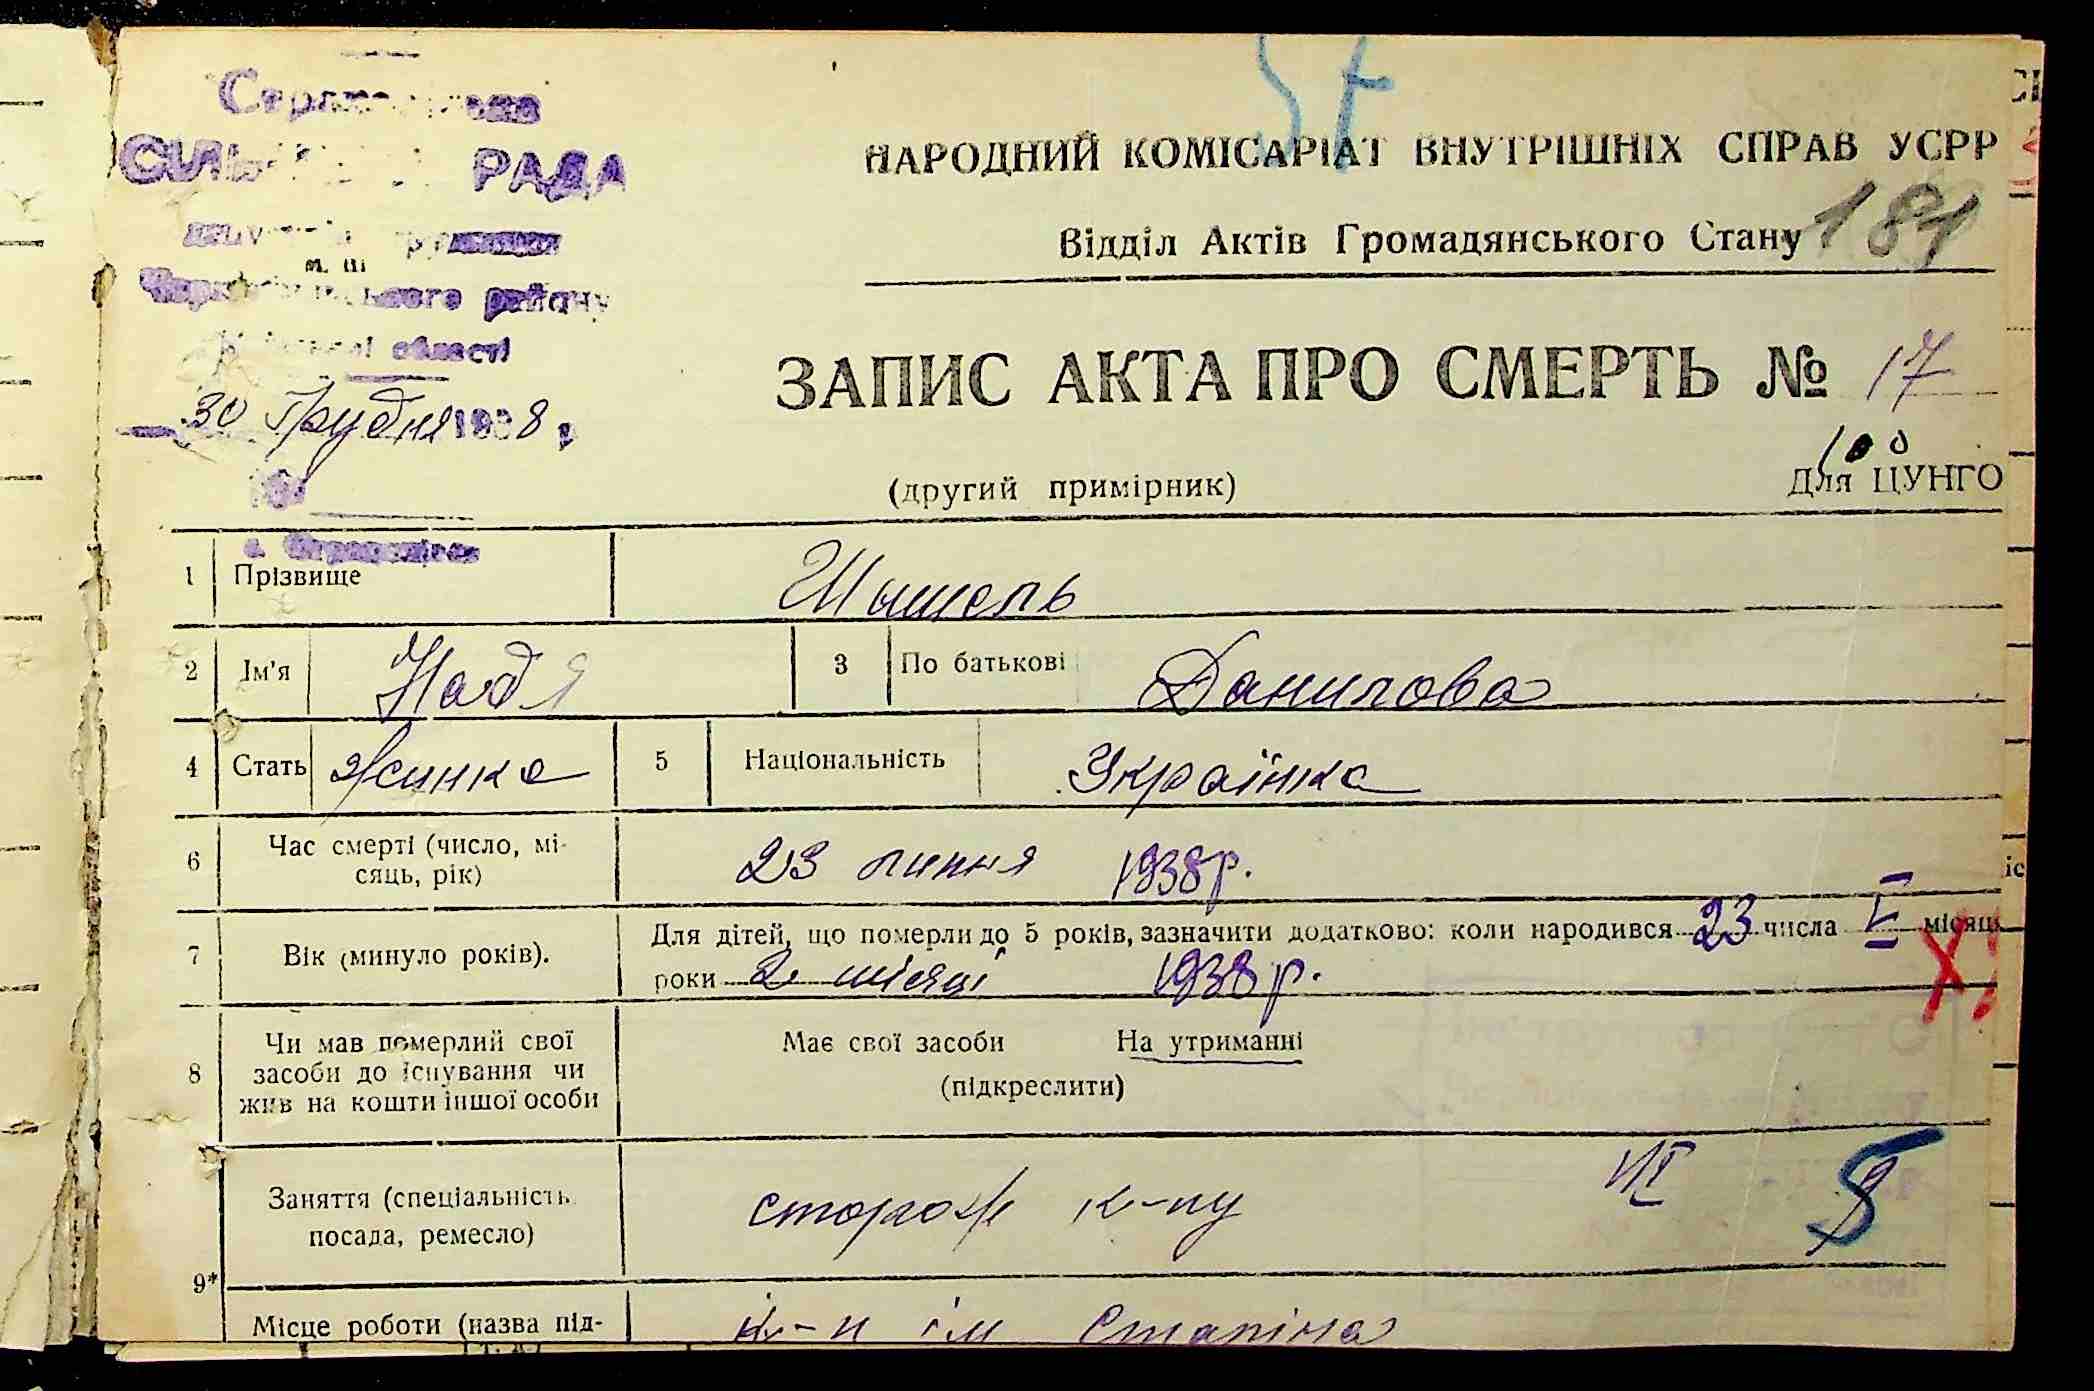 СІЛЬ РАДА
НАРОДНИЙ КОМІСАРІАТ ВНУТРІШНІХ СПРАВ УСРР
181
Відділ Актів Громадянського Стану
району
області
ЗАПИС АКТА ПРО СМЕРТЬ № 17
30 Грудня 1938 р.
100
(другий примірник)
Для ЦУНГО
1 Прізвище Шышель
2 Ім’я Надя 3 По батькові Данилова
4 Стать жинка 5 Національність Українка
6 Час смерті (число, мі-
сяць, рік) 23 липня 1938 р.
7 Вік (минуло років). Для дітей, що померли до 5 років, зазначити додатково: коли народився 23 числа V місяця
роки 2 місяці 1938 р.
8 Чи мав померлий свої
засоби до існування чи
жив на кошти іншої особи
Має свої засоби На утриманні
(підкреслити)
9* Заняття (спеціальність
посада, ремесло) сторож к-пу
VI
Місце роботи (назва під- к-п ім Сталіна